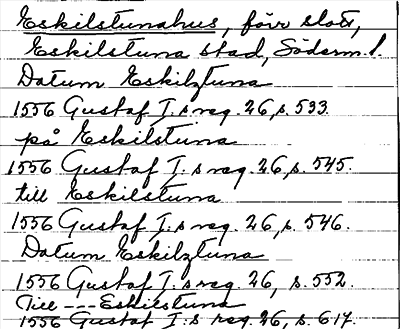 Eskilstunahus, förr slott,
Eskilstuna stad, Söderm. l.
Datum Eskilztuna
1556 Gustaf I:s reg. 26, s. 533.
på Eskilstuna
1556 Gustaf I:s reg. 26, s. 545.
till Eskilstuna
1556 Gustaf I:s reg. 26, s. 546.
Datum Eskilztuna
1556 Gustaf I:s reg. 26, s. 552.
Till --- Eskilstuna
1556 Gustaf I:s reg. 26, s. 617.